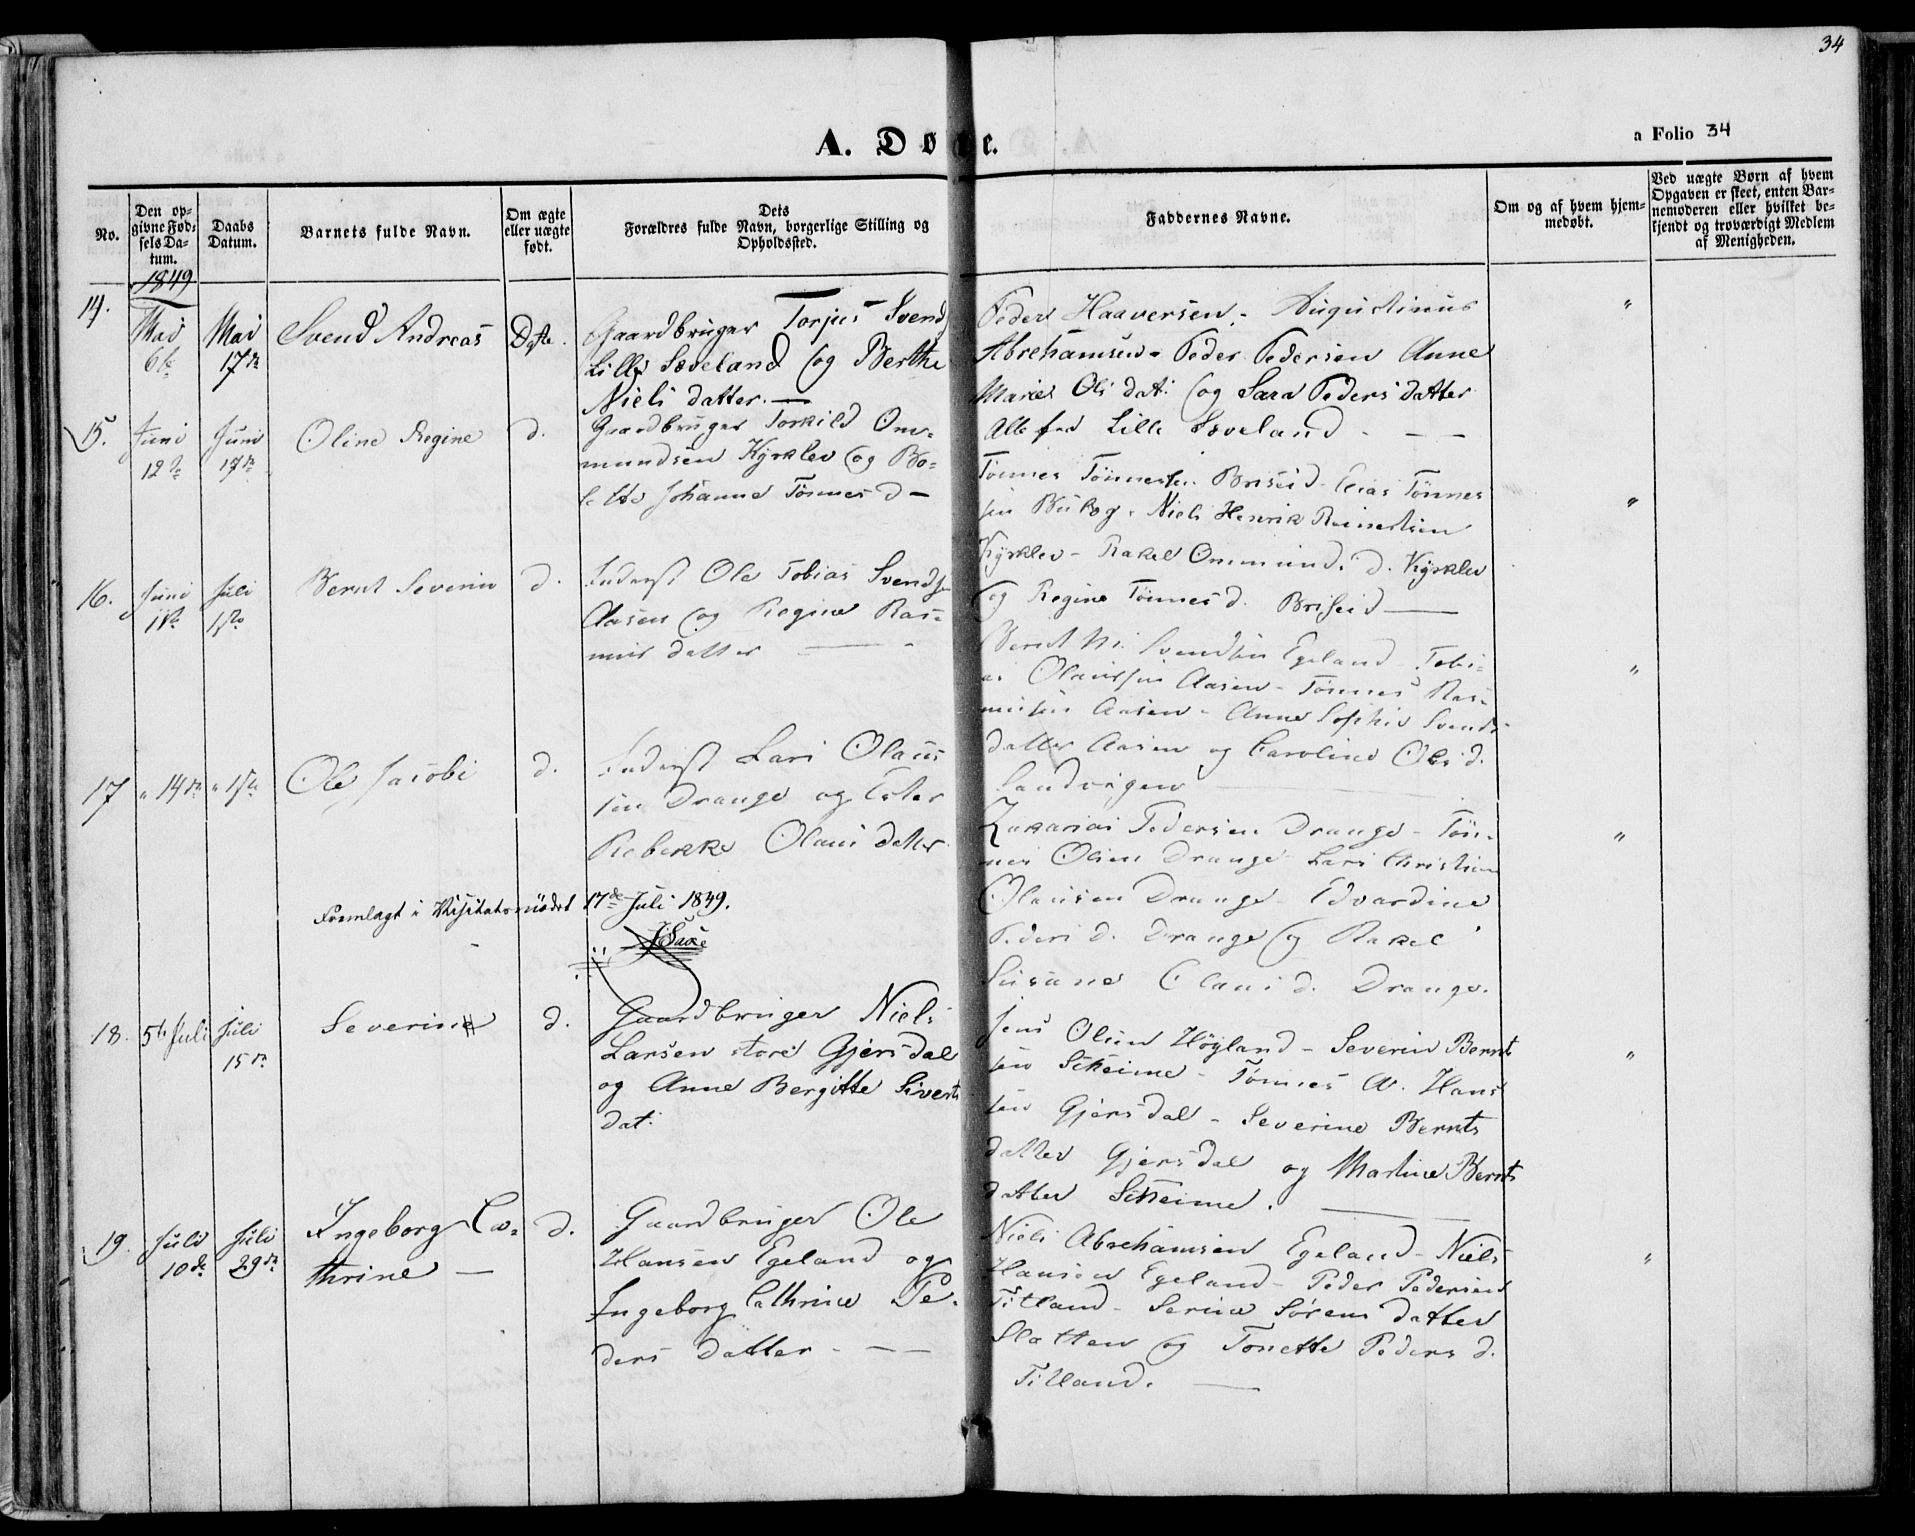 34
A. Døbte.
a Folio 34
No.
Den op-
givne Fød-
sels Da-
tum.
Daabs
Datum.
Barnets fulde Navn.
Om ægte
eller uægte
født.
Dets
Forældres fulde Navn, borgerlige Stilling og
Opholdssted.
Faddernes Navne.
Om og af hvem hjem-
medøbt.
Ved uægte Børn af hvem
Opgaven er skeet, enten Bar-
nemoderen eller hvilket be-
kjendt og troværdigt Medlem
af Menigheden.
1849
14.
Mai
6te
Mai
17de
Svend Andreas
Gaardbruger Torjus Svends
Lille Sæveland og Berthe
Niels datter. —
Peder Haaversen - Augustinus
Abrehamsen - Peder Pedersen Anne
Marie Ols dat: og Sara Peders datter
Alle fra Lille Sæveland - — —
"
15.
Juni
12te
Juni
17de
Oline Regine
d.
Gaardbruger Torkild Om-
mundsen Kyrklev og Bo-
lette Johanne Tønnes d —
Tønnes Tønnessen Briseid - Elias Tønnes
sen - Niels Henrik Reinertsen
Kyrklev - Rakel Ommunds. d. Kyrklev
og Regine Tønnes d. Briseid —
"
16.
Juni
Juli
1ste
Bernt Severin
d.
Inderst Ole Tobias Svends
Aasen og Regine Ras-
mus datter —
Bernt Svendsen Egeland - Tobi-
as Olaussen Aasen - Tønnes Ras-
mussen Aasen - Anne Sophie Svends
datter Aasen og Caroline Ols d.
Sandvigen —
"
17
" 14de
" 1ste
Ole Jacobi
d.
Inderst Lars Olaus
sen Drange og Ester
Rebekke Olaus datter
Zakarias Pedersen Drange - Tøn-
nes Olsen Drange - Lars Christian
Olausen Drange - Edvardine
Peders d. Drange og Rakel
Susane Olaus d. Drange.
"
Fremlagt i Visitatsmødet 17de Juli 1849.
18.
5te Juli
Juli
15de
Severine
d.
Gaardbruger Niels
Larsen store Gjersdal
og Anne Bergitte Siverts
dat:
Jens Olsen Høyland - Severin Bernt
sen Skeime - Tønnes A. Hans
sen Gjersdal - Severine Bernts
datter Gjersdal og Martine Bernts
datter Skeime. —
"
19.
Juli
10de
Juli
29de
Ingeborg Ca-
thrine —
d.
Gaardbruger Ole
Hansen Egeland og
Ingeborg Cathrine Pe-
ders datter - — —
Niels Abrehamsen Egeland - Niels
Hansen Egeland - Peder Pedersen
Titland - Serine Sørens datter
Slotten og Tonette Peders d.
Titland. —
"